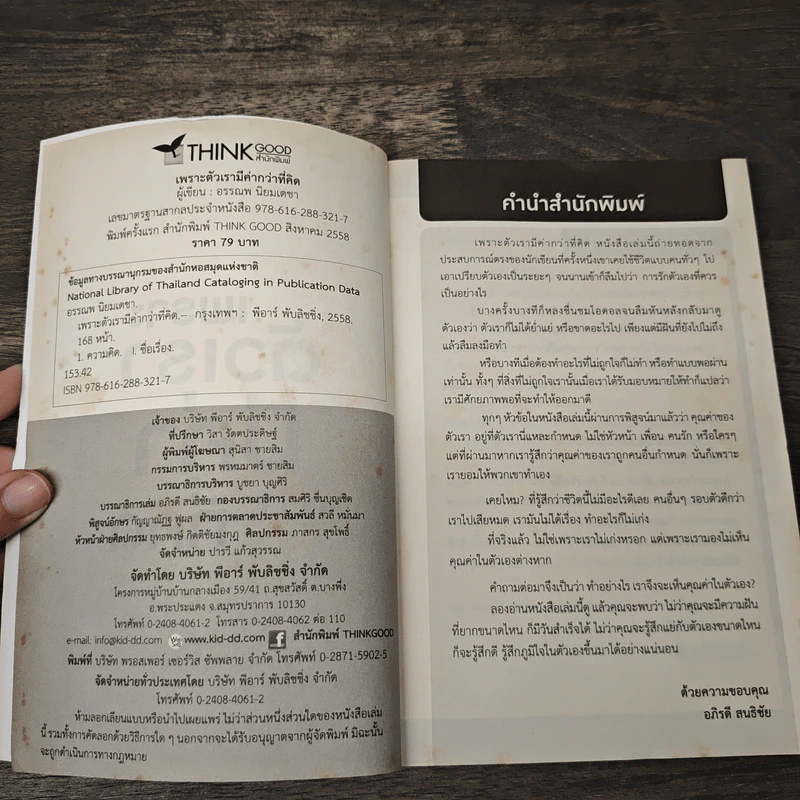 THINK GOOD
สำนักพิมพ์
เพราะตัวเรามีค่ากว่าที่คิด
ผู้เขียน : อรรณพ นิยมเดชา
เลขมาตรฐานสากลประจำหนังสือ 978-616-288-321-7
พิมพ์ครั้งแรก สำนักพิมพ์ THINK GOOD สิงหาคม 2558
ราคา 79 บาท
ข้อมูลทางบรรณานุกรมของสำนักหอสมุดแห่งชาติ
National Library of Thailand Cataloging in Publication Data
อรรณพ นิยมเดชา.
เพราะตัวเรามีค่ากว่าที่คิด.-- กรุงเทพฯ : พีอาร์ พับลิชชิ่ง, 2558.
168 หน้า.
1. ความคิด. I. ชื่อเรื่อง.
153.42
ISBN 978-616-288-321-7
เจ้าของ บริษัท พีอาร์ พับลิชชิ่ง จำกัด
ที่ปรึกษา วิสา รัตตประดิษฐ์
ผู้พิมพ์ผู้โฆษณา สุนิสา ชายสิม
กรรมการบริหาร พรหมมาตร์ ชายสิม
บรรณาธิการบริหาร บูชยา บุญศิริ
บรรณาธิการเล่ม อภิรดี สนธิชัย กองบรรณาธิการ สมศิริ ชื่นบุญเชิด
พิสูจน์อักษร กัญญาณัฏฐ ฟูผล ฝ่ายการตลาดประชาสัมพันธ์ สวลี หมั่นมา
หัวหน้าฝ่ายศิลปกรรม ยุทธพงษ์ กิตติชัยมงกุฎ ศิลปกรรม ภาสกร สุขโพธิ์
จัดจำหน่าย ปารวี แก้วสุวรรณ
จัดทำโดย บริษัท พีอาร์ พับลิชชิ่ง จำกัด
โครงการหมู่บ้านบ้านกลางเมือง 59/41 ถ.สุขสวัสดิ์ ต.บางพึ่ง
อ.พระประแดง จ.สมุทรปราการ 10130
โทรศัพท์ 0-2408-4061-2 โทรสาร 0-2408-4062 ต่อ 110
e-mail: info@kid-dd.com www.kid-dd.com f สำนักพิมพ์ THINKGOOD
พิมพ์ที่ บริษัท พรอสเพอร์ เซอร์วิส ซัพพลาย จำกัด โทรศัพท์ 0-2871-5902-5
จัดจำหน่ายทั่วประเทศโดย บริษัท พีอาร์ พับลิชชิ่ง จำกัด
โทรศัพท์ 0-2408-4061-2
ห้ามลอกเลียนแบบหรือนำไปเผยแพร่ ไม่ว่าส่วนหนึ่งส่วนใดของหนังสือเล่ม
นี้ รวมทั้งการคัดลอกด้วยวิธีการใด ๆ นอกจากจะได้รับอนุญาตจากผู้จัดพิมพ์ มิฉะนั้น
จะถูกดำเนินการทางกฎหมาย
คำนำสำนักพิมพ์
เพราะตัวเรามีค่ากว่าที่คิด หนังสือเล่มนี้ถ่ายทอดจาก
ประสบการณ์ตรงของนักเขียนที่ครั้งหนึ่งเขาเคยใช้ชีวิตแบบคนทั่วๆ ไป
เอาเปรียบตัวเองเป็นระยะๆ จนนานเข้าก็ลืมไปว่า การรักตัวเองที่ควร
เป็นอย่างไร
บางครั้งบางทีก็หลงชื่นชมไอดอลจนลืมหันหลังกลับมาดู
ตัวเองว่า ตัวเราก็ไม่ได้ย่ำแย่ หรือขาดอะไรไป เพียงแต่มีฝันที่ยังไปไม่ถึง
แล้วลืมลงมือทำ
หรือบางทีเมื่อต้องทำอะไรที่ไม่ถูกใจก็ไม่ทำ หรือทำแบบพอผ่าน
เท่านั้น ทั้งๆ ที่สิ่งที่ไม่ถูกใจเรานั้นเมื่อเราได้รับมอบหมายให้ทำก็แปลว่า
เรามีศักยภาพพอที่จะทำให้ออกมาดี
ทุกๆ หัวข้อในหนังสือเล่มนี้ผ่านการพิสูจน์มาแล้วว่า คุณค่าของ
ตัวเรา อยู่ที่ตัวเรานี่แหละกำหนด ไม่ใช่หัวหน้า เพื่อน คนรัก หรือใครๆ
แต่ที่ผ่านมาหากเรารู้สึกว่าคุณค่าของเราถูกคนอื่นกำหนด นั่นก็เพราะ
เรายอมให้พวกเขาทำเอง
เคยไหม? ที่รู้สึกว่าชีวิตนี้ไม่มีอะไรดีเลย คนอื่นๆ รอบตัวดีกว่า
เราไปเสียหมด เรามันไม่ได้เรื่อง ทำอะไรก็ไม่เก่ง
ที่จริงแล้ว ไม่ใช่เพราะเราไม่เก่งหรอก แต่เพราะเรามองไม่เห็น
คุณค่าในตัวเองต่างหาก
คำถามต่อมาจึงเป็นว่า ทำอย่างไร เราจึงจะเห็นคุณค่าในตัวเอง?
ลองอ่านหนังสือเล่มนี้ดู แล้วคุณจะพบว่า ไม่ว่าคุณจะมีความฝัน
ที่ยากขนาดไหน ก็มีวันสำเร็จได้ ไม่ว่าคุณจะรู้สึกแย่กับตัวเองขนาดไหน
ก็จะรู้สึกดี รู้สึกภูมิใจในตัวเองขึ้นมาได้อย่างแน่นอน
ด้วยความขอบคุณ
อภิรดี สนธิชัย